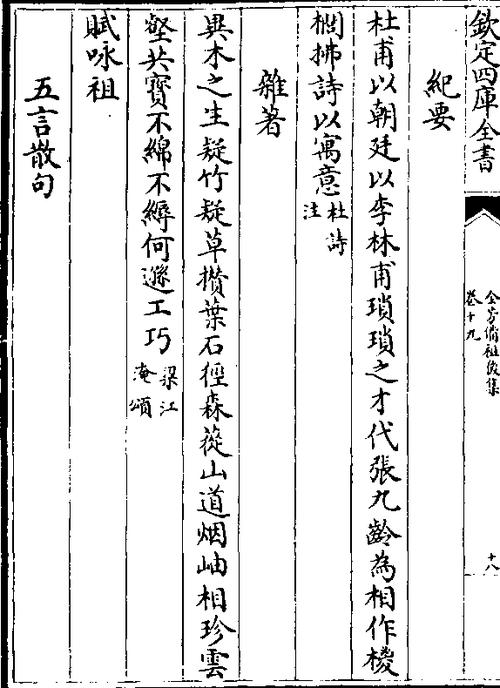 欽定四庫全書
全芳備祖後集
卷十九
十八
紀要
杜甫以朝廷以李林甫瑣瑣之才代張九齡為相作椶
櫚拂詩以寓意杜詩
注
雜著
異木之生疑竹疑草攢葉石徑森蓯山道烟岫相珍雲
壑共寶不綿不縟何避工巧梁江
淹頌
賦咏祖
五言散句